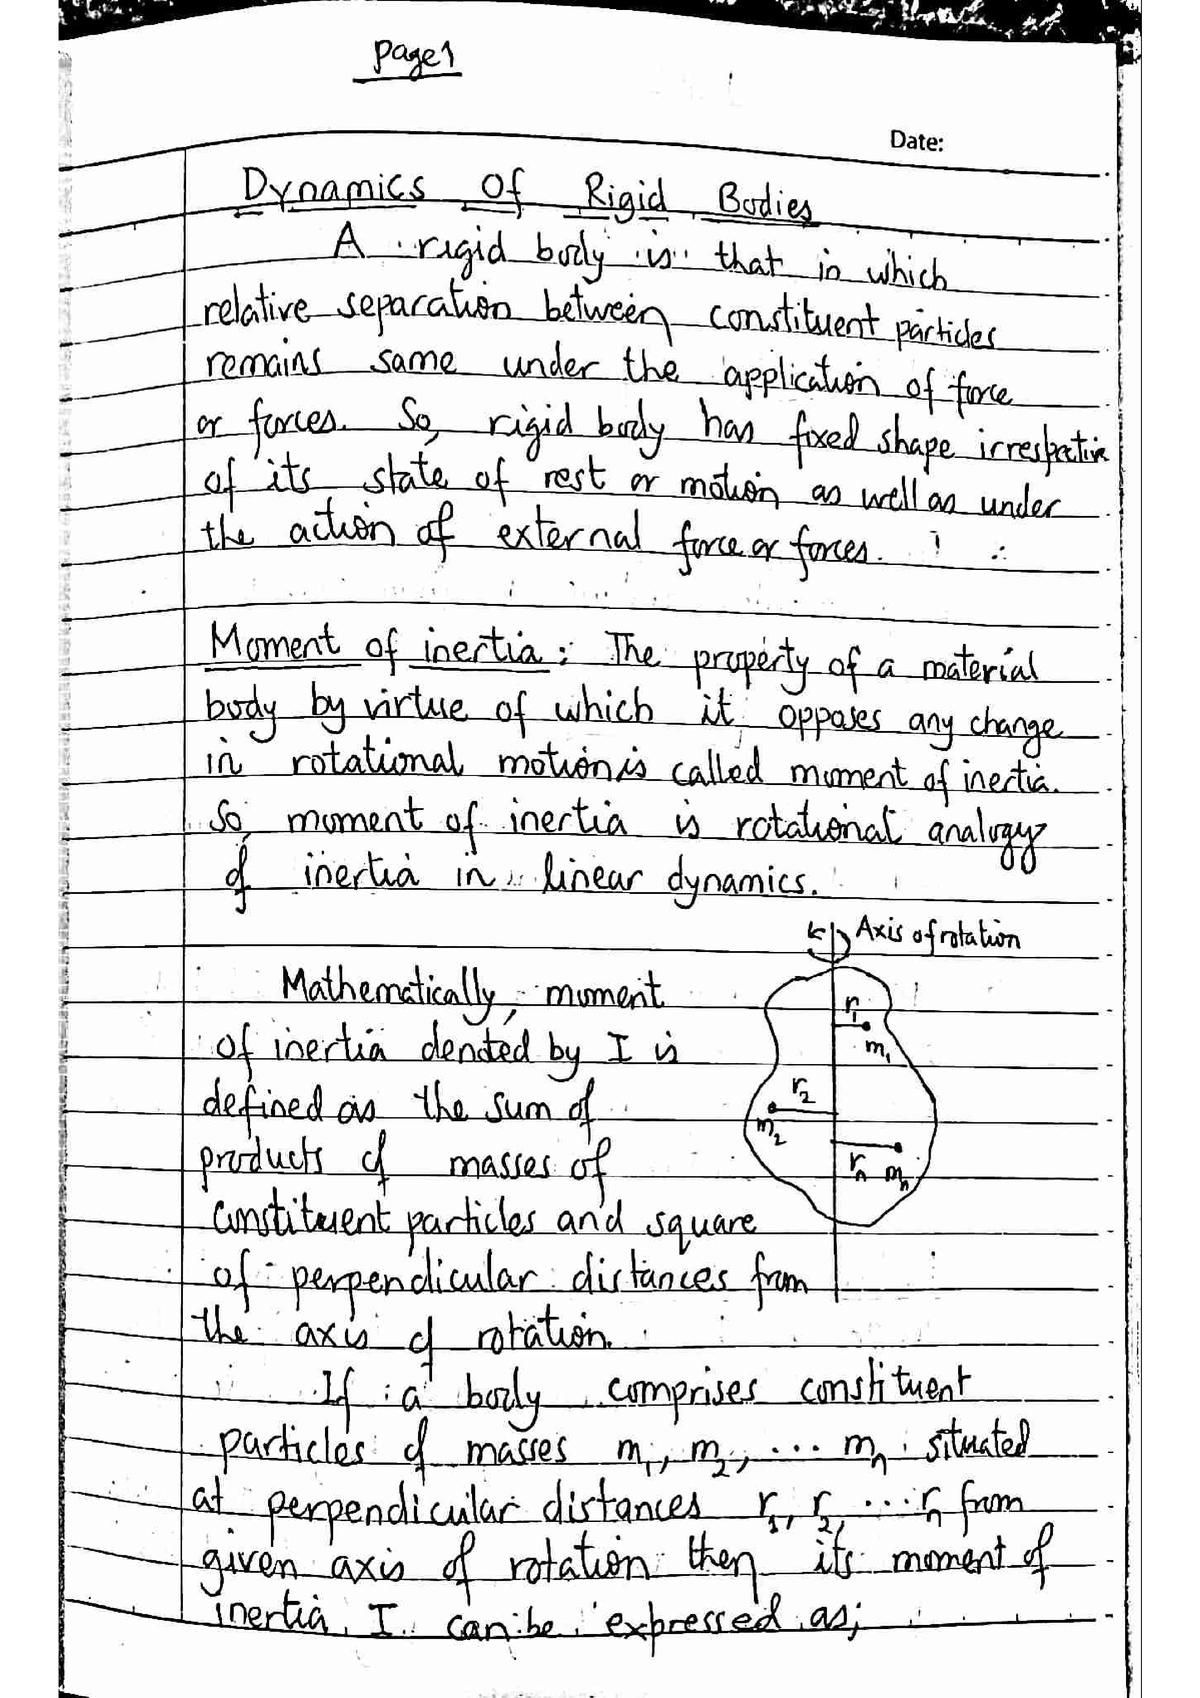 Page 1
Date:
Dynamics Of Rigid Bodies
A rigid body is that in which
relative separation between constituent particles
remains same under the application of force
or forces. So, rigid body has fixed shape irrespective
of its state of rest or motion as well as under
the action of external force or forces.
Moment of inertia: The property of a material
body by virtue of which it opposes any change
in rotational motion is called moment of inertia.
So, moment of inertia is rotational analogy
of inertia in linear dynamics.
Axis of rotation
Mathematically, moment
of inertia denoted by I is
defined as the sum of
products of masses of
constituent particles and square
of perpendicular distances from
the axis of rotation.
r₁
m₁
r₂
m₂
rₙ mₙ
If a body comprises constituent
particles of masses m₁, m₂, ... mₙ situated
at perpendicular distances r₁, r₂, ... rₙ from
given axis of rotation then its moment of
inertia I can be expressed as;